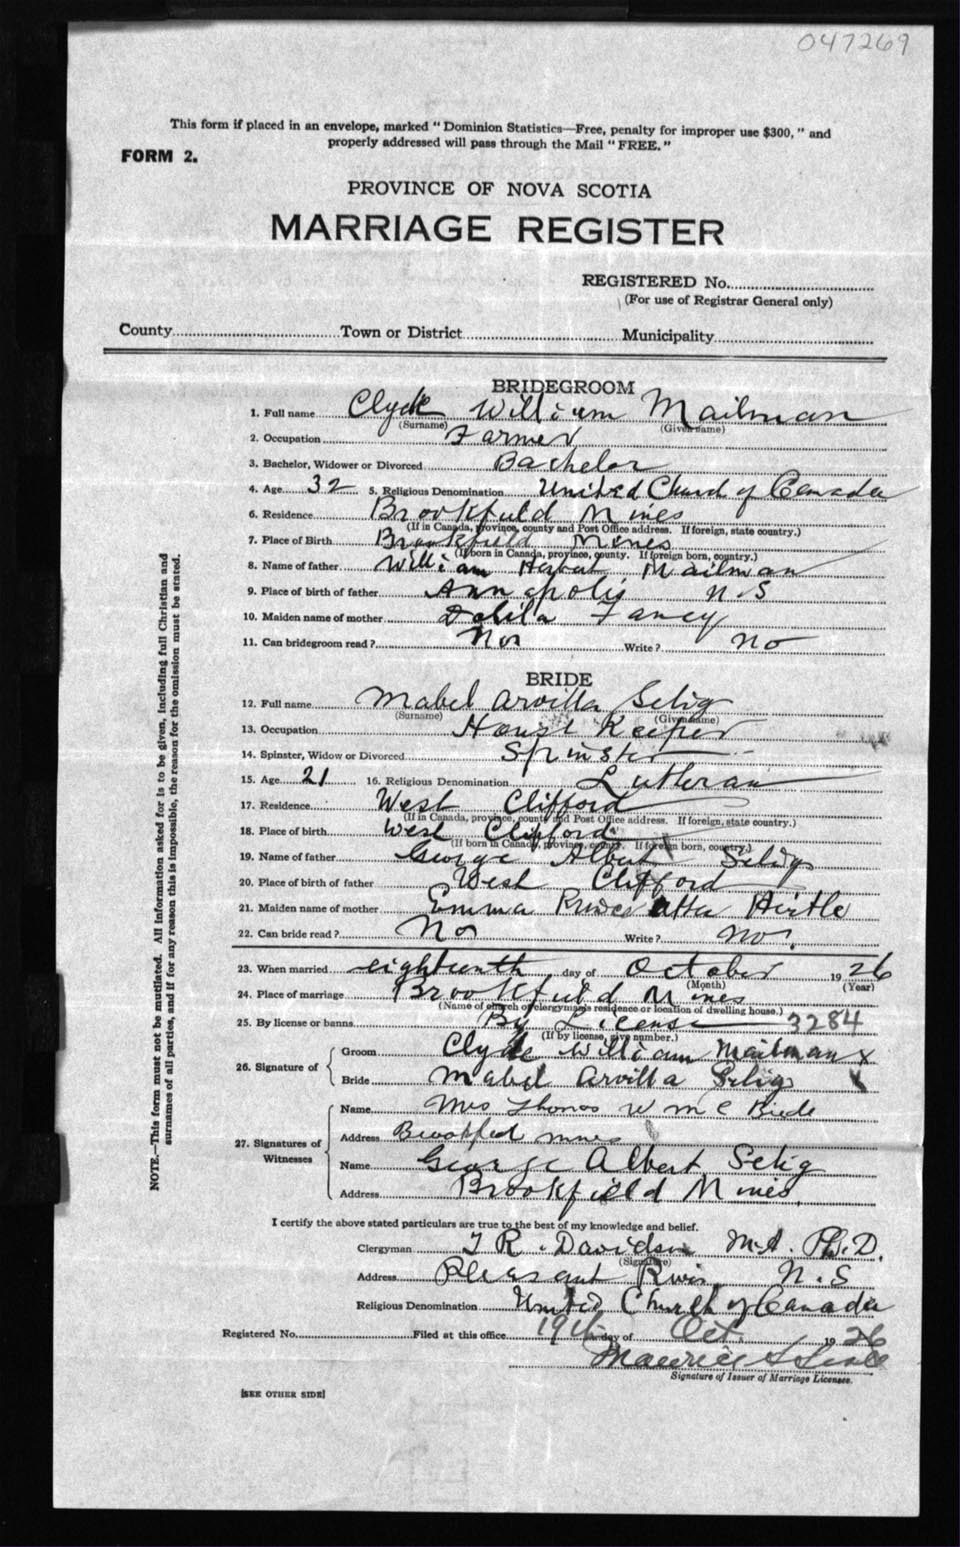 047269
This form if placed in an envelope, marked "Dominion Statistics—Free, penalty for improper use $300," and
properly addressed will pass through the Mail "FREE."
FORM 2.
PROVINCE OF NOVA SCOTIA
MARRIAGE REGISTER
REGISTERED No.
(For use of Registrar General only)
County Town or District Municipality
BRIDEGROOM
1. Full name Clyde William Mailman
(Surname) (Given name)
2. Occupation Farmer
3. Bachelor, Widower or Divorced Bachelor
4. Age 32 5. Religious Denomination United Church of Canada
6. Residence Brookfield Mines
(If in Canada, province, county and Post Office address. If foreign, state country.)
7. Place of Birth Brookfield Mines
(If born in Canada, province, county. If foreign born, country.)
8. Name of father William Herbert Mailman
9. Place of birth of father Annapolis N.S
10. Maiden name of mother Delila Fancy
11. Can bridegroom read? Write? no
BRIDE
12. Full name Mabel Arvilla Selig
(Surname) (Given name)
13. Occupation House Keeper
14. Spinster, Widow or Divorced Spinster
15. Age 21 16. Religious Denomination Lutheran
17. Residence West Clifford
(If in Canada, province, county and Post Office address. If foreign, state country.)
18. Place of birth West Clifford
(If born in Canada, province, county. If foreign born, country.)
19. Name of father George Albert Selig
20. Place of birth of father West Clifford
21. Maiden name of mother Emma Hirtle
22. Can bride read? No Write? no.
23. When married eighteenth day of October 1926
(Month) (Year)
24. Place of marriage Brookfield Mines
(Name of church or clergyman's residence or location of dwelling house.)
25. By license or banns By License 3284
(If by license, give number.)
26. Signature of
Groom Clyde William Mailman x
Bride Mabel Arvilla Selig
27. Signatures of Witnesses
Name Mrs Thomas W
Address Brookfield mines
Name George Albert Selig
Address Brookfield Mines
I certify the above stated particulars are true to the best of my knowledge and belief.
Clergyman Davidson M.A. Ph.D.
(Signature)
Address Pleasant River N.S
Religious Denomination United Church of Canada
Registered No. Filed at this office 19th day of Oct. 1926
Maurice
Signature of Issuer of Marriage Licenses.
[SEE OTHER SIDE]
NOTE.—This form must not be mutilated. All information asked for is to be given, including full Christian and
surnames of all parties, and if for any reason this is impossible, the reason for the omission must be stated.